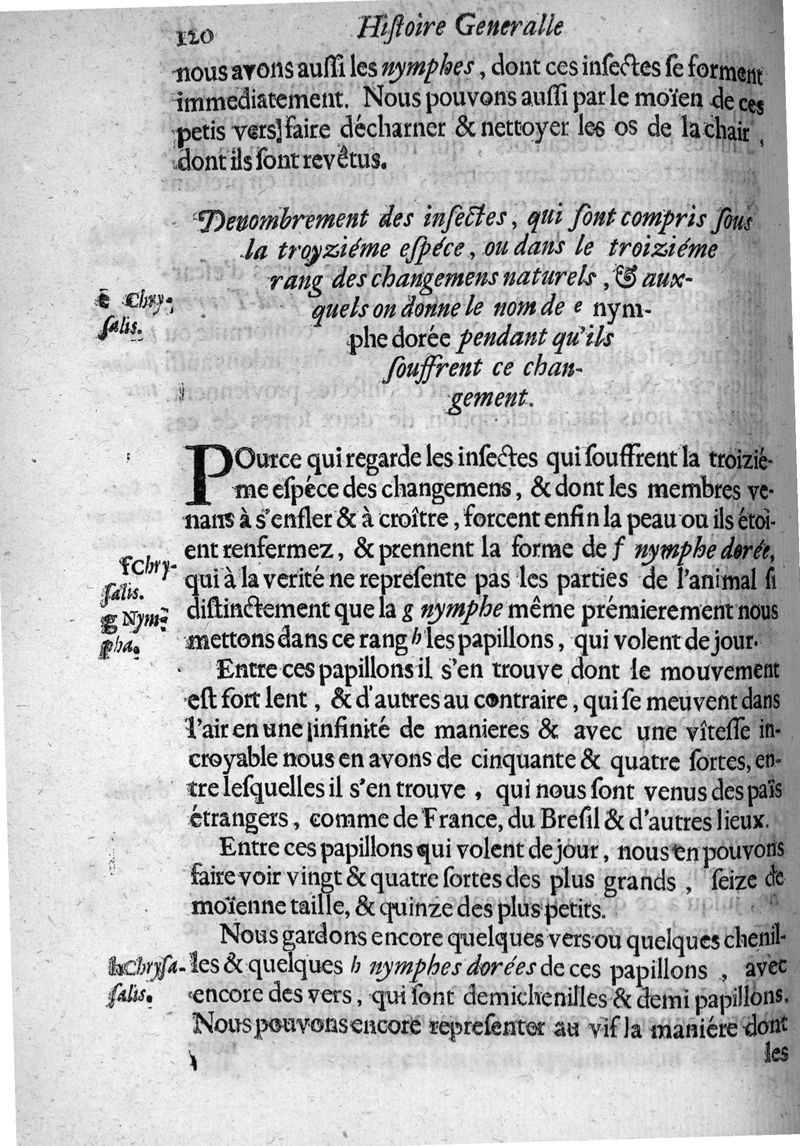 120 Histoire Generalle
nous avons aussi les nymphes, dont ces insectes se forment
immediatement. Nous pouvons aussi par le moïen de ces
petis vers] faire décharner & nettoyer les os de la chair,
dont ils sont revêtus.
Denombrement des insectes, qui sont compris sous
la troyziéme espéce, ou dans le troiziéme
rang des changemens naturels, & aux-
e Chry-
quels on donne le nom de e nym-
salis.
phe dorée pendant qu'ils
souffrent ce chan-
gement.
POur ce qui regarde les insectes qui souffrent la troizié-
me espéce des changemens, & dont les membres ve-
nans à s'enfler & à croître, forcent enfin la peau ou ils étoi-
ent renfermez, & prennent la forme de f nymphe dorée,
f Chry-
salis.
qui à la verité ne represente pas les parties de l'animal si
g Nym-
distinctement que la g nymphe même prémierement nous
pha.
mettons dans ce rang h les papillons, qui volent de jour.
Entre ces papillons il s'en trouve dont le mouvement
est fort lent, & d'autres au contraire, qui se meuvent dans
l'air en une infinité de manieres & avec une vîtesse in-
croyable nous en avons de cinquante & quatre sortes, en-
tre lesquelles il s'en trouve, qui nous sont venus des païs
étrangers, comme de France, du Bresil & d'autres lieux.
Entre ces papillons qui volent de jour, nous en pouvons
faire voir vingt & quatre sortes des plus grands, seize de
moïenne taille, & quinze des plus petits.
Nous gardons encore quelques vers ou quelques chenil-
h Chrysa-
les & quelques h nymphes dorées de ces papillons, avec
salis.
encore des vers, qui sont demi chenilles & demi papillons.
Nous pouvons encore representer au vif la maniére dont
les